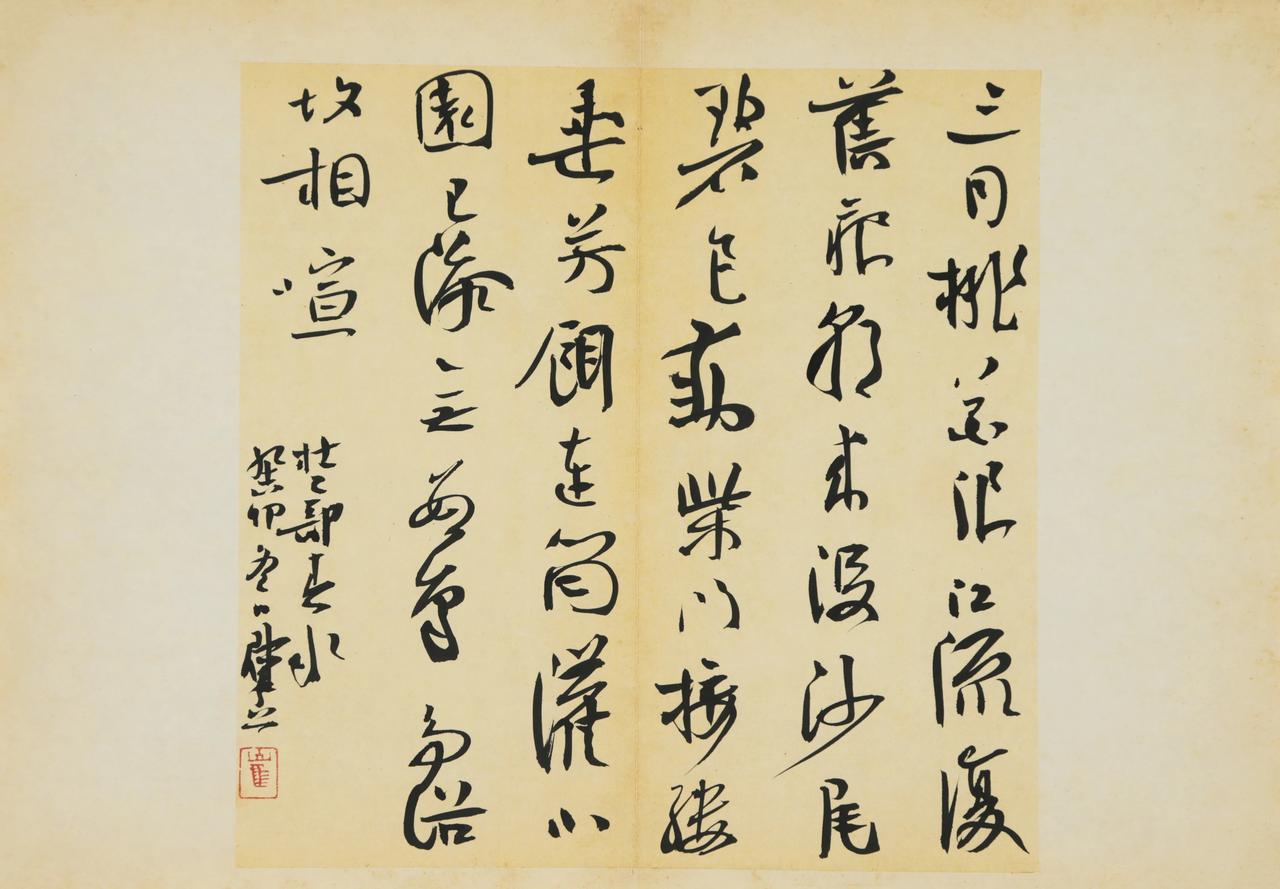 三月桃花浪江流復
舊痕朝來沒沙尾
碧色動柴門接縷
垂芳餌連筒灌小
園已添無數鳥爭浴
故相喧
杜工部春水
癸卯冬日